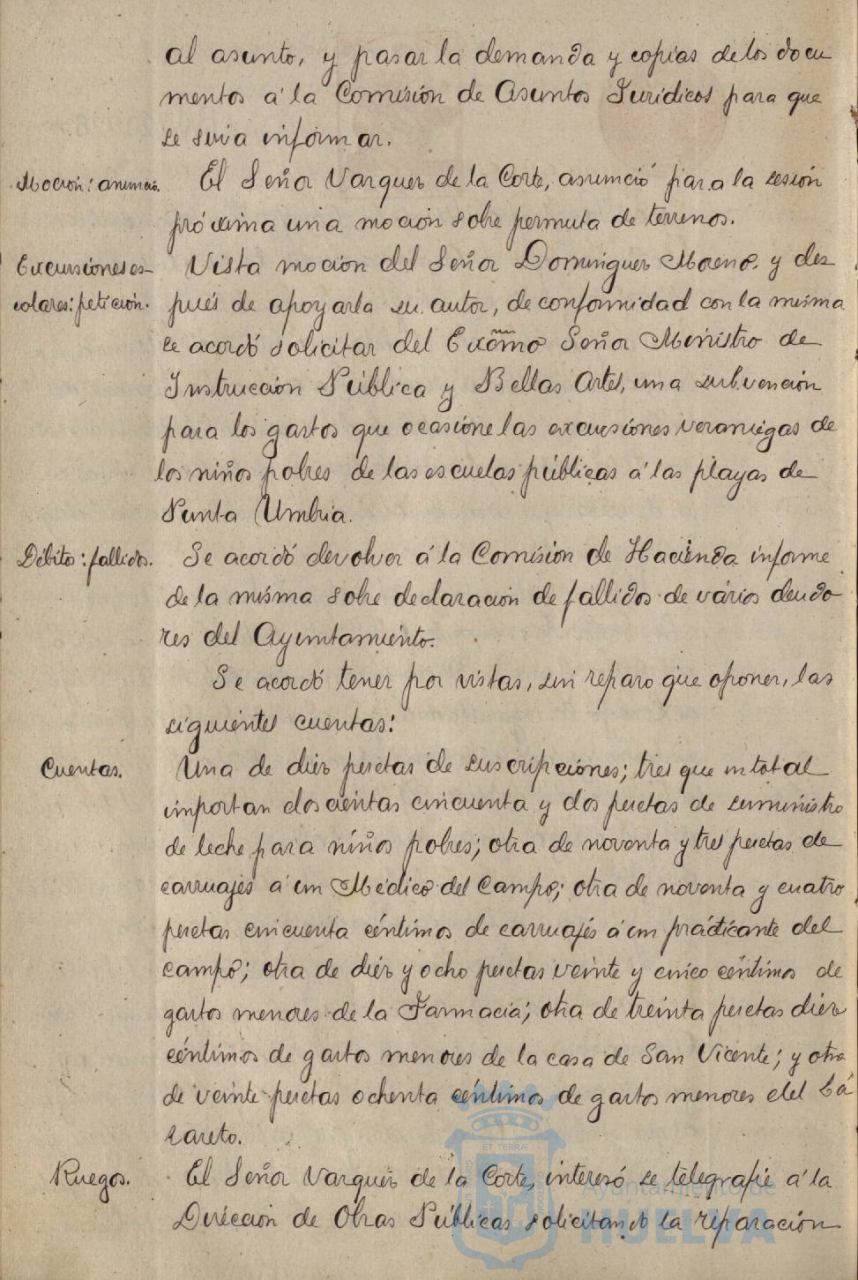 al asunto, y pasar la demanda y copias de los docu
mentos á la Comisión de Asuntos Jurídicos para que
se sirva informar.
Moción: anuncio. El Señor Varquez de la Corte, anunció para la sesión
próxima una moción sobre permuta de terrenos.
Excursiones es- Vista moción del Señor Dominguez Moreno y des
colares: petición. pués de apoyarla su autor, de conformidad con la misma
se acordó solicitar del Excmo Señor Ministro de
Instrucción Pública y Bellas Artes, una subvención
para los gastos que ocasione las excursiones veraniegas de
los niños pobres de las escuelas públicas á las playas de
Punta Umbria.
Débitos: fallidos. Se acordó devolver á la Comisión de Hacienda informe
de la misma sobre declaración de fallidos de vários deudo
res del Ayuntamiento.
Se acordó tener por vistas, sin reparo que oponer, las
siguientes cuentas:
Cuentas. Una de diez pesetas de suscripciones; tres que en total
importan doscientas cincuenta y dos pesetas de suministro
de leche para niños pobres; otra de noventa y tres pesetas de
carruajes á un Médico del Campo; otra de noventa y cuatro
pesetas cincuenta céntimos de carruajes á un practicante del
campo; otra de diez y ocho pesetas veinte y cinco céntimos de
gastos menores de la Farmacia; otra de treinta pesetas diez
céntimos de gastos menores de la casa de San Vicente; y otra
de veinte pesetas ochenta céntimos de gastos menores del Lá
zareto.
Ruegos. El Señor Varquez de la Corte, interesó se telegrafie á la
Dirección de Obras Públicas solicitando la reparación
ET TERRÆ
Ayuntamiento de
HUELVA